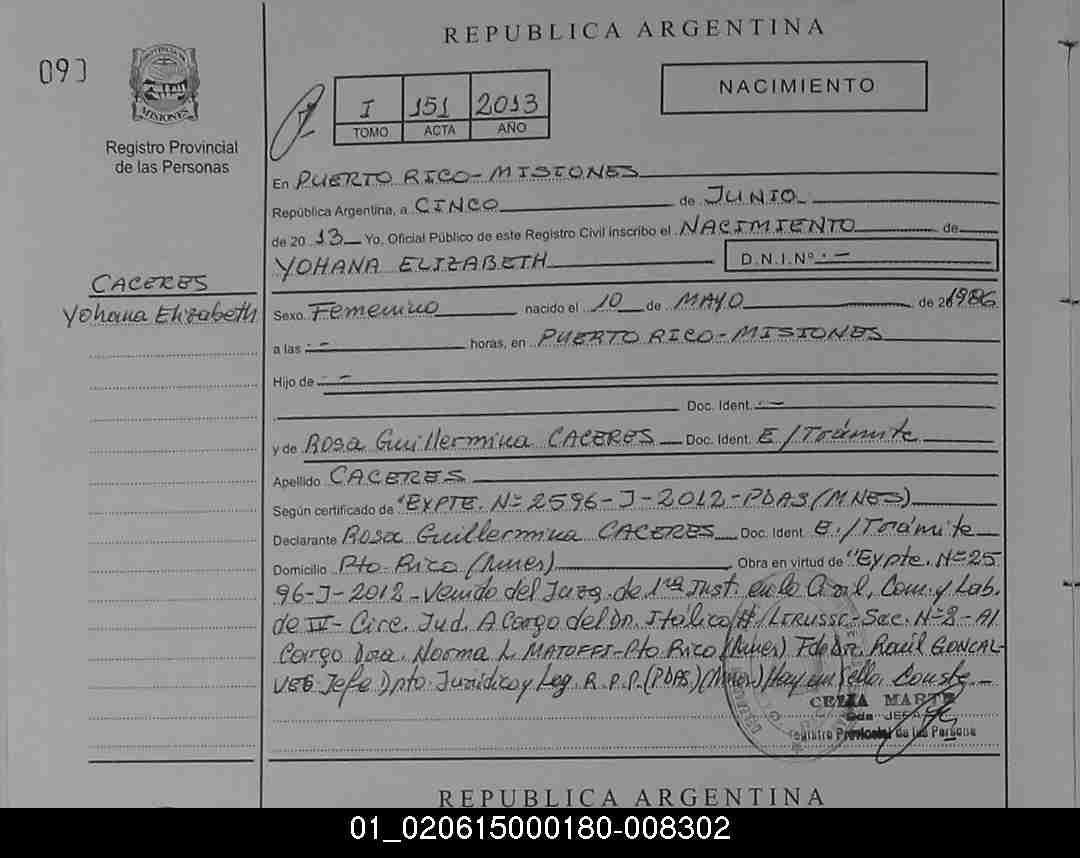 REPUBLICA ARGENTINA
093
PROVINCIA DE
MISIONES
Registro Provincial
de las Personas
I 151 2013
TOMO ACTA AÑO
NACIMIENTO
En PUERTO RICO - MISIONES
República Argentina, a CINCO de JUNIO
de 20 13 Yo, Oficial Público de este Registro Civil inscribo el NACIMIENTO de
YOHANA ELIZABETH D.N.I.Nº · -
CACERES
Yohana Elizabeth
Sexo. Femenino nacido el 10 de MAYO de 1986
a las · - horas, en PUERTO RICO - MISIONES
Hijo de · -
Doc. Ident. · -
y de Rosa Guillermina CACERES Doc. Ident. E/Trámite
Apellido CACERES
Según certificado de "EXPTE. Nº 2596-J-2012-PDAS (MNES)
Declarante Rosa Guillermina CACERES Doc. Ident E./Trámite
Domicilio Pto. Rico (Mnes) Obra en virtud de "Expte. Nº 25
96-J-2012 - Venido del Juzg. de 1ra Inst. en lo Civil, Com. y Lab.
de III - Circ. Jud. A Cargo del Dr. Itálico Sec. Nº 2 - A/
Cargo Dra. Norma L. Pto Rico (Mnes) Fdo Dr. Raúl GONCAL-
VES Jefe Dpto. Jurídico y Leg. R.P.P. (PDAS) (Mnes) Hay un sello. Conste. -
CELIA
JEFA
Registro Provincial de las Persona
REPUBLICA ARGENTINA
01_020615000180-008302